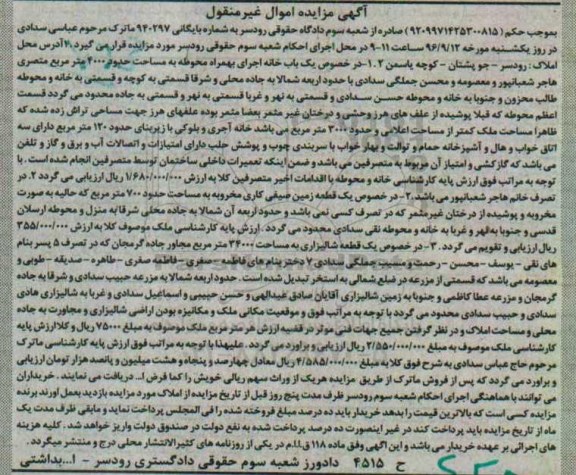 آگهی مزایده اموال غیرمنقول
بموجب حکم (۹۲۰۹۹۷۱۴۲۵۳۰۰۸۱۵) صادره از شعبه سوم دادگاه حقوقی رودسر به شماره بایگانی ۹۴۰۲۹۷ ماترک مرحوم عباسی سدادی
در روز یکشنبه مورخه ۹۶/۹/۱۲ ساعت ۱۱-۹ در محل اجرای احکام شعبه سوم حقوقی رودسر مورد مزایده قرار می گیرد. آدرس محل
املاک: رودسر - جو پشتان - کوچه یاسمن ۲. ۱- در خصوص یک باب خانه اجرای بهمراه محوطه به مساحت حدود ۴۰۰۰ متر مربع متصری
هاجر شعبانپور و معصومه و محسن جملگی سدادی با حدود اربعه شمالا به جاده محلی و شرقا قسمتی به کوچه و قسمتی به خانه و محوطه
طالب محزون و جنوبا به خانه و محوطه حسن سدادی و قسمتی به نهر و غربا قسمتی به نهر و قسمتی به جاده محدود می گردد قسمت
اعظم محوطه که قبلا پوشیده از علف های هرز وحشی و درختان غیر مثمر بعضا مثمر بوده علفهای هرز جهت مساحی تراش زده شده که
ظاهرا مساحت ملک کمتر از مساحت اعلامی و حدود ۳۰۰۰ متر مربع می باشد خانه آجری و بلوکی با زیربنای حدود ۱۲۰ متر مربع دارای سه
اتاق خواب و هال و آشپزخانه حمام و توالت و بهار خواب با سربندی چوب و پوشش حلب دارای امتیازات و اتصالات آب و برق و گاز و تلفن
می باشد که گازکشی و امتیاز آن مربوط به متصرفین می باشد و ضمن اینکه تعمیرات داخلی ساختمان توسط متصرفین انجام شده است. با
توجه به مراتب فوق ارزش پایه کارشناسی خانه و محوطه با اقدامات اخیر متصرفین کلا به ارزش ۱/۶۸۰/۰۰۰/۰۰۰ ریال ارزیابی می گردد. ۲. در
تصرف خانم هاجر شعبانپور می باشد. ۲- در خصوص یک قطعه زمین صیفی کاری مخروبه به مساحت حدود ۷۰۰ متر مربع که حالیه به صورت
مخروبه و پوشیده از درختان غیر مثمر که در تصرف کسی نمی باشد و حدود اربعه آن شمالا به جاده محلی شرقا به منزل و محوطه ارسلان
قدسی و جنوبا به نهر و غربا به خانه و محوطه نقی سدادی محدود می گردد. ارزش پایه کارشناسی ملک موصوف کلا به ارزش ۳۵۵/۰۰۰/۰۰۰
ریال ارزیابی و تقویم می گردد. ۳- در خصوص یک قطعه شالیزاری به مساحت ۳۴۰۰۰ متر مربع مجاور جاده گرمجان که در تصرف ۵ پسر بنام
های نقی - یوسف - محسن - رحمت و حبیب جملگی سدادی ۷ دختر بنام های فاطمه صغری - فاطمه صغری - طاهره - صدیقه - طوبی و
معصومه می باشد که قسمتی از مزرعه در ضلع شمالی به استخر تبدیل شده است. حدود اربعه شمالا به مزرعه حبیب سدادی و شرقا به جاده
گرمجان و مزرعه عطا کاظمی و جنوبا به زمین شالیزاری آقایان صادق عبدالهی و حسن حبیبی و اسماعیل سدادی و غربا به شالیزاری هادی
سدادی و حبیب سدادی محدود می گردد با توجه به مراتب فوق و موقعیت مکانی ملک و مکانیزه بودن اراضی شالیزاری و مجاورت به جاده
محلی و مساحت املاک و در نظر گرفتن جمیع جهات فنی موثر در قضیه ارزش هر متر مربع ملک موصوف به مبلغ ۷۵۰۰۰ ریال و کلا ارزش پایه
کارشناسی ملک موصوف به مبلغ ۲/۵۵۰/۰۰۰/۰۰۰ ریال ارزیابی و براورد می گردد. علیهذا با توجه به مراتب فوق ارزش پایه کارشناسی ماترک
مرحوم حاج عباس سدادی به شرح فوق کلا به مبلغ ۴/۵۸۵/۰۰۰/۰۰۰ ریال معادل چهارصد و پنجاه و هشت میلیون و پانصد هزار تومان ارزیابی
و براورد می گردد که پس از فروش ماترک از طریق مزایده هریک از وراث سهم ریالی خویش را کما فرض ا... دریافت می نمایند. خریداران
می توانند با هماهنگی اجرای احکام شعبه سوم رودسر ظرف مدت پنج روز قبل از تاریخ مزایده از املاک مورد مزایده بازدید بعمل آورند برنده
مزایده کسی است که بالاترین قیمت را بدهد خریدار باید ده درصد مبلغ فروخته شده را فی المجلس پرداخت نماید و مابقی ظرف مدت یک
ماه از تاریخ مزایده باید پرداخت کند در غیر اینصورت ده درصد پرداخت شده به نفع دولت در صندوق دولت واریز خواهد شد. کلیه هزینه
های اجرائی بر عهده خریدار می باشد و این آگهی وفق ماده ۱۱۸ ق.ا.م در یکی از روزنامه های کثیرالانتشار محلی درج و منتشر میگردد.
ح ۴۵۱۵ دادورز شعبه سوم حقوقی دادگستری رودسر - ا... بداشتی